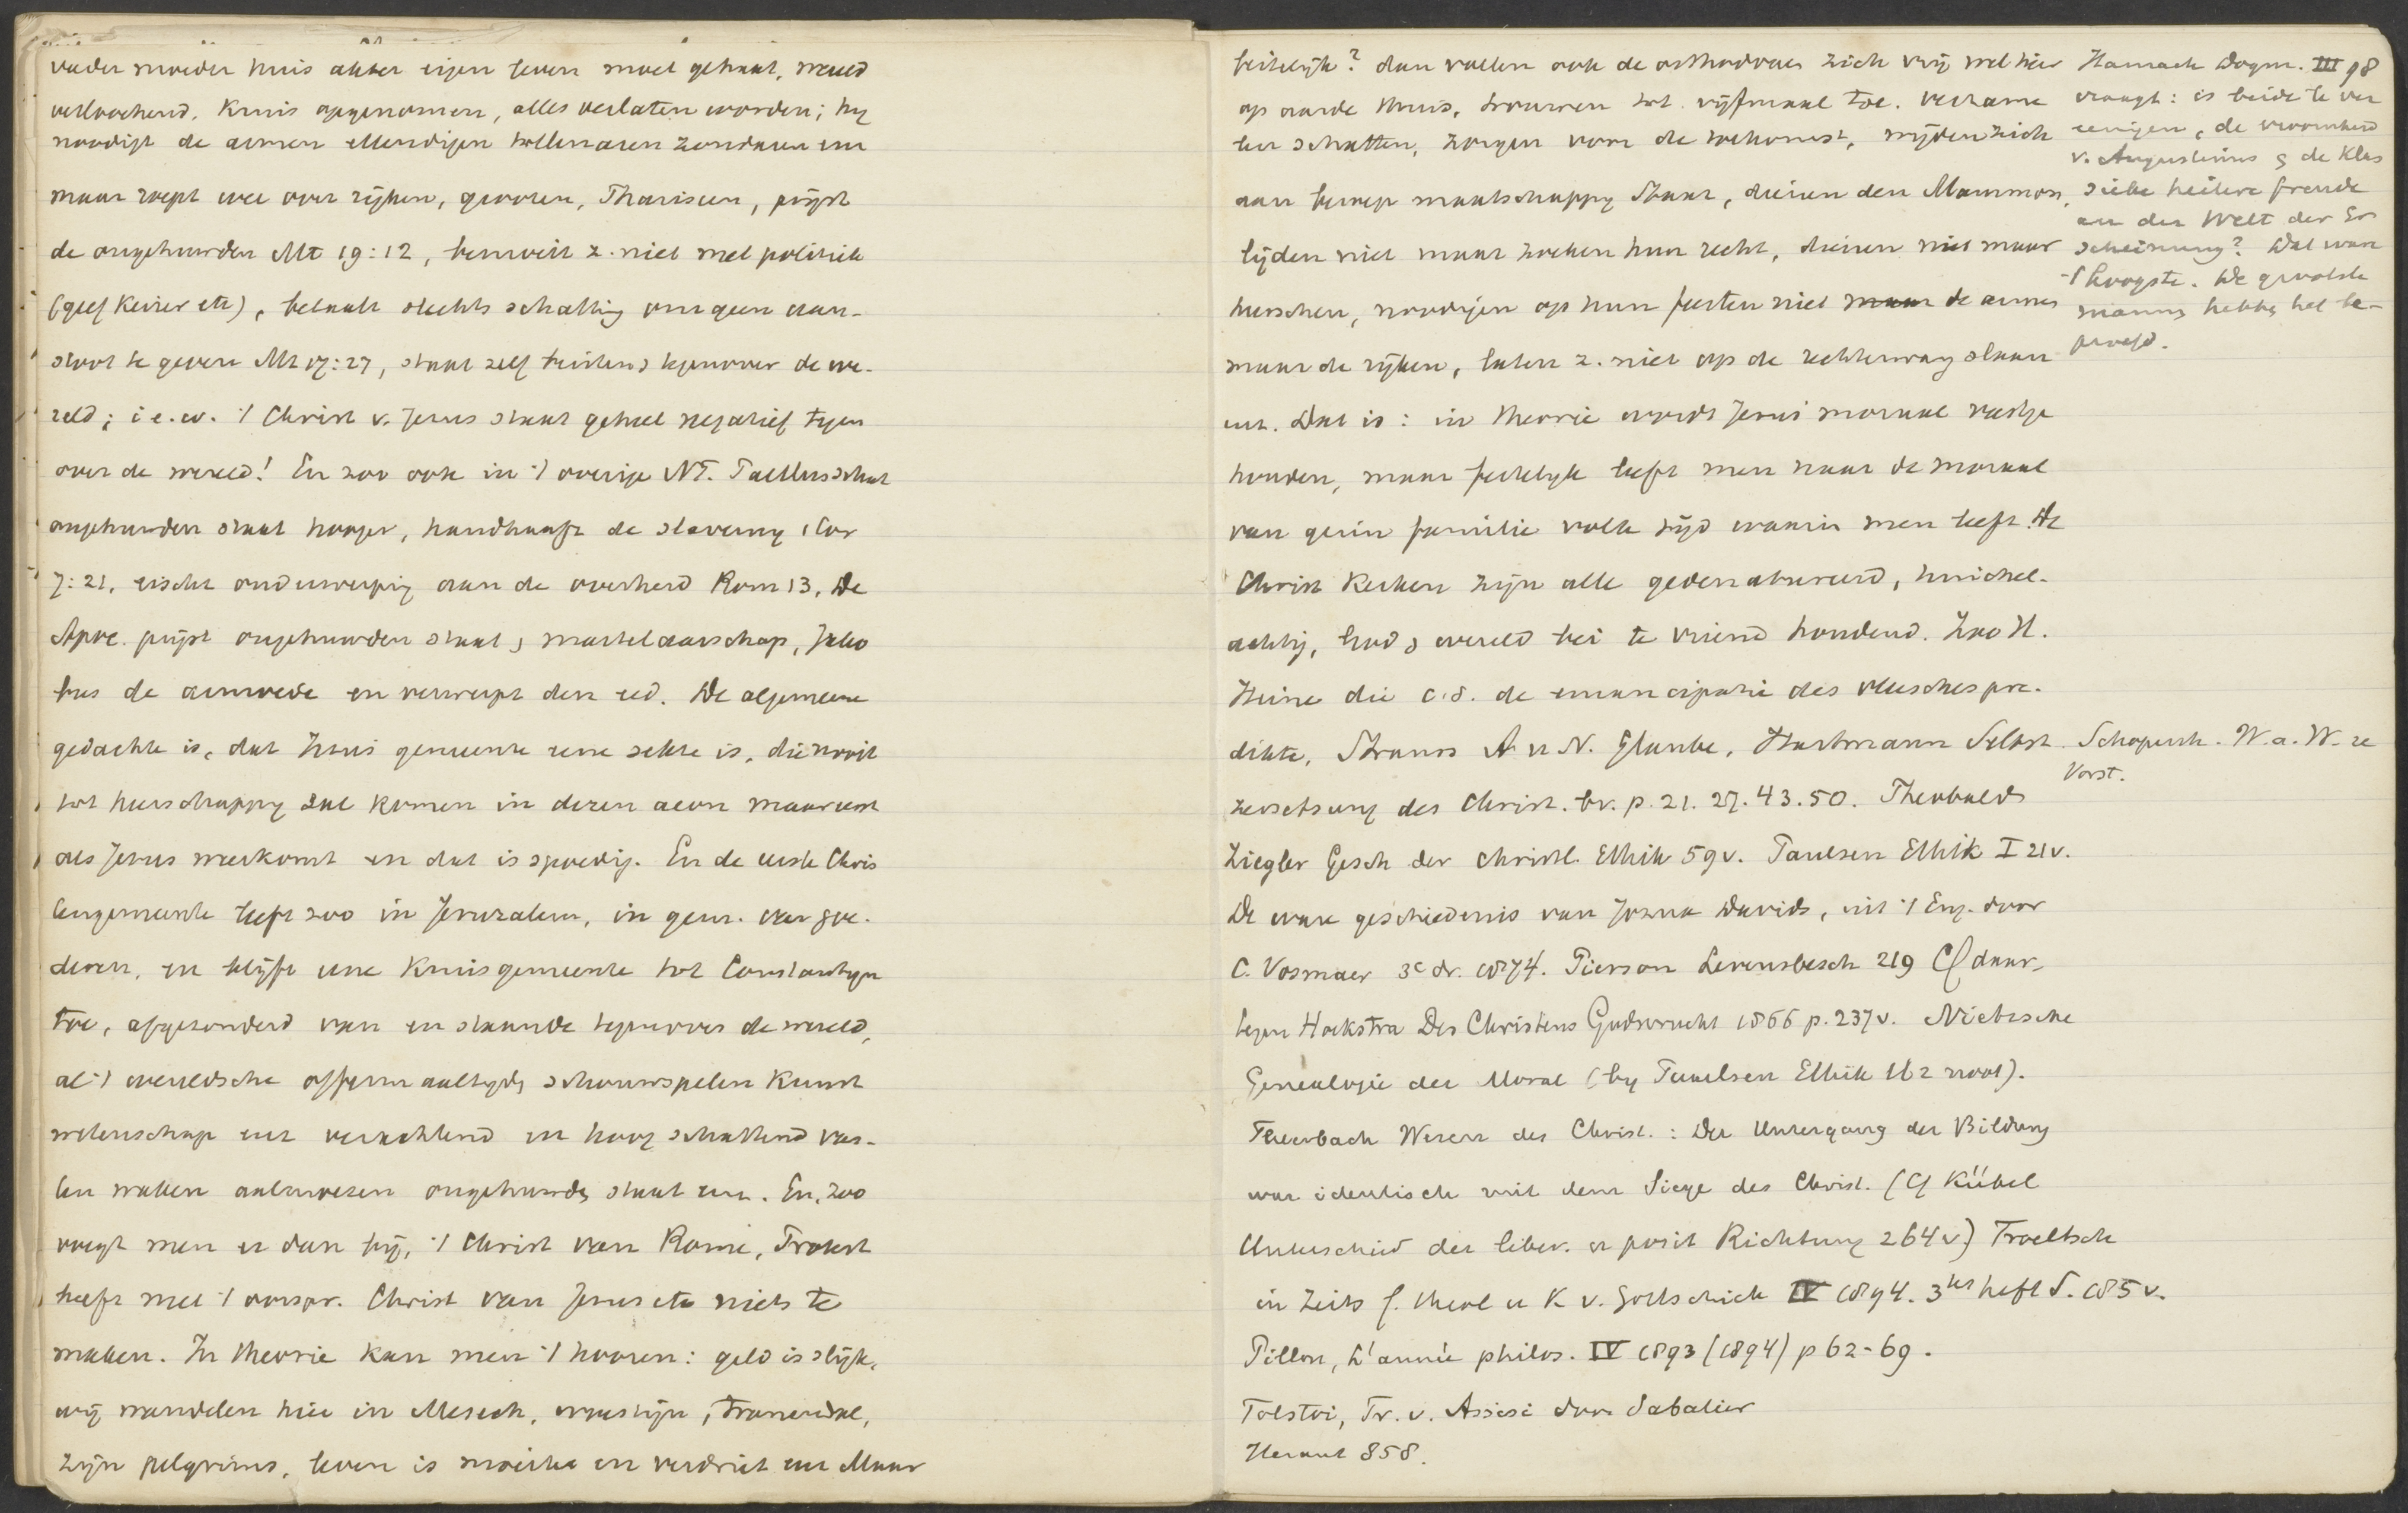 vader moeder huis akker eigen leven moet gehaat, wereld
verloochend, kruis opgenomen, alles verlaten worden; hy
noodigt de armen ellendigen tollenaren zondaren enz
maar roept wee over rijken, grooten, Phariseen, prijst
de ongehuwden Mt 19:12, bemoeit z. niet met politiek
(geef Keizer etc), betaalt slechts schatting om geen aan-
stoot te geven Mt 17:27, staat zelf buiten & tegenover de we-
reld; i e. w. 't Christ v. Jezus staat geheel negatief tegen
over de wereld! En zoo ook in 't overige NT. Paulus schat
ongehuwden staat hooger, handhaaft de slaverny 1 Cor
7:21, eischt onderwerping aan de overheid Rom 13, De
Apoc. prijst ongehuwden staat & martelaarschap, Jako
bus de armoede en verwerpt den eed. De algemeene
gedachte is, dat Jezus gemeente eene sekte is, die nooit
tot heerschappy zal komen in dezen aeon maar eerst
als Jezus weerkomt en dat is spoedig. En de eerste Chris
tengemeente leeft zoo in Jeruzalem, in gem. van goe-
deren, en blijft eene Kruisgemeente tot Constantyn
toe, afgezonderd van en staande tegenover de wereld,
al 't wereldsche offermaaltyds schouwspelen Kunst
wetenschap enz verachtend en hoog schattend vas-
ten waken aalmoezen ongehuwde staat enz. En, zoo
voegt men er dan bij, 't Christ van Rome, Protest
heeft met 't oorspr. Christ van Jezus etc niets te
maken. In theorie kan men 't hooren: geld is slijk,
wij wandelen hier in Mesech, woestijn, tranendal,
zijn pelgrims, leven is moeite en verdriet enz Maar
feitelijk? dan voelen ook de orthodoxen zich vrij wel hier
op aarde thuis, trouwen tot vijfmaal toe, verzame
len schatten, zorgen voor de toekomst, wijden zich
aan beroep maatschappy Staat, dienen den Mammon,
lijden niet maar zoeken hun recht, dienen niet maar
heerschen, noodigen op hun feesten niet maar de armen
maar de rijken, laten z. niet op de rechterwang slaan
enz. Dat is: in theorie wordt Jezus moraal vastge
houden, maar feitelyk leeft men naar de moraal
van gezin familie volk tijd waarin men leeft. De
Christ Kerken zijn alle gedenatureerd, huichel-
achtig, God & wereld bei te vriend houdend. Zoo H.
Heine die c.s. de emancipatie des vleesches pre-
dikte, Strauss A u N. Glaube, Hartmann Selbst
zersetzung des Christ. br. p. 21. 27. 43. 50. Theobald
Ziegler Gesch der Christl. Ethik 59v. Paulsen Ethik I 21v.
De ware geschiedenis van Jozua Davids, uit 't Eng. door
C. Vosmaer 3e dr. 1874. Pierson Levensbesch 219 Cf daar-
tegen Hoekstra Des Christens Godsvrucht 1866 p. 237v. Nietzsche
Genealogie der Moral (by Paulsen Ethik 112 noot).
Feuerbach Wesen des Christ.: Der Untergang der Bildung
war identisch mit dem Siege des Christ. (Cf Kübel
Unterschied der liber. u posit Richtung 264v) Troeltsch
in Zeits f. theol u K v. Gottschick IV 1894. 3tes heft S. 185v.
Pillon, L'année philos. IV 1893 (1894) p 62-69.
Tolstoi, Fr. v. Assisi door Sabatier
Heraut 858.
Harnack Dogm. III 98
vraagt: is beide te ver
eenigen, de vroomheid
v. Augustinus & de Klas
sieke heitere freude
an der Welt der Er
scheinung? Dat ware
't hoogste. De grootste
mannen hebben het be-
proefd.
Schopenh. W. a. W. 2e
Vorst.